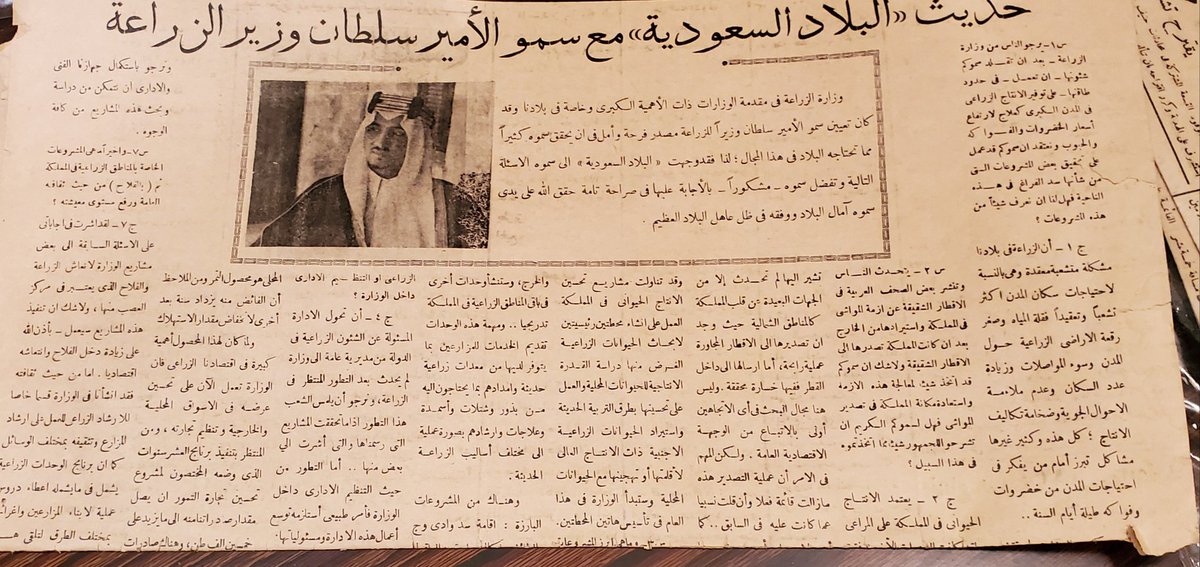 حديث «البلاد السعودية» مع سمو الأمير سلطان وزير الزراعة
وزارة الزراعة فى مقدمة الوزارات ذات الأهمية الكبرى وخاصة فى بلادنا وقد
كان تعيين سمو الأمير سلطان وزيراً للزراعة مصدر فرحة وأمل فى ان يحقق سموه كثيراً
مما تحتاجه البلاد فى هذا المجال؛ لذا فقد وجهت «البلاد السعودية» الى سموه الاسئلة
التالية وتفضل سموه - مشكوراً - بالأجابة عليها فى صراحة تامة حقق الله على يدى
سموه آمال البلاد ووفقه فى ظل عاهل البلاد العظيم .
س ١ - يرجو الناس من وزارة
الزراعة - بعد ان تقلد سموكم
شئونها - ان تعمل - فى حدود
طاقتها - على توفير الانتاج الزراعى
فى المدن الكبرى كعلاج لارتفاع
أسعار الخضروات والفواكه
والحبوب ونعتقد ان سموكم قد عمل
على تحقيق بعض المشروعات التى
من شأنها سد الفراغ فى هذه
الناحية فهل لنا ان نعرف شيئاً من
هذه المشروعات ؟
ج ١ - أن الزراعة فى بلادنا
مشكلة متشعبة معقدة وهى بالنسبة
لاحتياجات سكان المدن اكثر
تشعباً وتعقيداً فقلة المياه وصغر
رقعة الاراضى الزراعية حول
المدن وسوء المواصلات وزيادة
عدد السكان وعدم ملاءمة
الاحوال الجوية وضخامة تكاليف
الانتاج ؛ كل هذه وكثير غيرها
مشاكل تبرز أمام من يفكر فى
احتياجات المدن من خضروات
وفواكه طيلة أيام السنة ..
س ٢ - يتحدث الناس
وتنشر بعض الصحف العربية فى
الاقطار الشقيقة عن ازمة المواشى
فى المملكة واستيرادها من الخارج
بعد ان كانت المملكة تصدرها الى
الاقطار الشقيقة ولاشك ان سموكم
قد اتخذ شيئاً لمعالجة هذه الازمة
واستعادة مكانة المملكة فى تصدير
المواشى فهل لسموكم الكريم ان
تشرحوا للجمهور شيئاً مما اتخذتموه
فى هذا السبيل ؟
ج ٢ - يعتمد الانتاج
الحيوانى فى المملكة على المراعى
تشير اليها لم تحدث إلا من
الجهات البعيدة عن قلب المملكة
كالمناطق الشمالية حيث وجد
ان تصديرها الى الاقطار المجاورة
عملية رابحة، أما ارسالها الى داخل
القطر ففيها خسارة محققة . وليس
هنا مجال البحث فى أى الاتجاهين
أولى بالاتباع من الوجهة
الاقتصادية العامة . ولكن المهم
فى الامر أن عملية التصدير هذه
مازالت قائمة فعلا وأن قلت نسبيا
عما كانت عليه فى السابق .. كما
وقد تناولت مشاريع تحسين
الانتاج الحيوانى فى المملكة
العمل على انشاء محطتين رئيسيتين
لابحاث الحيوانات الزراعية
الغرض منها دراسة القدرة
الانتاجية للحيوانات المحلية والعمل
على تحسينها بطرق التربية الحديثة
واستيراد الحيوانات الزراعية
الاجنبية ذات الانتاج العالى
لأقلمتها أو تهجينها مع الحيوانات
المحلية وستبدأ الوزارة فى هذا
العام فى تأسيس هاتين المحطتين .
والخرج، وستنشأ وحدات أخرى
فى باقى المناطق الزراعية فى المملكة
تدريجيا .. ومهمة هذه الوحدات
تقديم الخدمات للمزارعين بما
يتوفر لديها من معدات زراعية
حديثة وامدادهم بما يحتاجون اليه
من بذور وشتلات وأسمدة
وعلاجات وارشادهم بصورة عملية
الى مختلف أساليب الزراعة
الحديثة .
وهناك من المشروعات
البارزة : اقامة سد وادى وج
الزراعى او التنظيم الادارى
داخل الوزارة ؟
ج ٤ - أن تحول الادارة
المسئولة عن الشئون الزراعية فى
الدولة من مديرية عامة الى وزارة
لم يحدث بعد التطور المنتظر فى
الزراعة، ونرجو أن يلمس الشعب
هذا التطور اذا ما تحققت المشاريع
التى رسمناها والتى أشرت الى
بعض منها .. أما التطور من
حيث التنظيم الادارى داخل
الوزارة فأمر طبيعى أستلزمه توسع
أعمال هذه الادارة ومسئولياتها .
المحلى هو محصول التمر ومن الملاحظ
أن الفائض منه يزداد سنة بعد
أخرى لانخفاض مقدار الاستهلاك
ولما كان لهذا المحصول أهمية
كبيرة فى اقتصادنا الزراعى فان
الوزارة تعمل الآن على تحسين
عرضه فى الاسواق المحلية
والخارجية وتنظيم تجارته ، ومن
المنتظر بتنفيذ برنامج العشر سنوات
الذى وضعه المختصون لمشروع
تحسين تجارة التمور ان يصل
مقدار صادراتنا منه ما يزيد على
خمسين الف طن ، وهناك صادرات
ونرجو باستكمال جهازنا الفنى
والادارى ان نتمكن من دراسة
وبحث هذه المشاريع من كافة
الوجوه .
س ٧ - واخيراً ما هى المشروعات
الخاصة بالمناطق الزراعية فى المملكة
ثم ( بالفلاح ) من حيث ثقافته
العامة ورفع مستوى معيشته ؟
ج ٧ - لقد اشرت فى اجاباتى
على الاسئلة السابقة الى بعض
مشاريع الوزارة لانعاش الزراعة
والفلاح الذى يعتبر فى مركز
العصب منها ، ولاشك ان تنفيذ
هذه المشاريع سيعمل - بأذن الله
على زيادة دخل الفلاح وانتعاشه
اقتصاديا . اما من حيث ثقافته
فقد انشأنا فى الوزارة قسما خاصا
للارشاد الزراعى للعمل على ارشاد
المزارع وتثقيفه بمختلف الوسائل
كما ان برنامج الوحدات الزراعية
يشمل فى ما يشمله اعطاء دروس
عملية لابناء المزارعين
بمختلف الطرق لتلقى